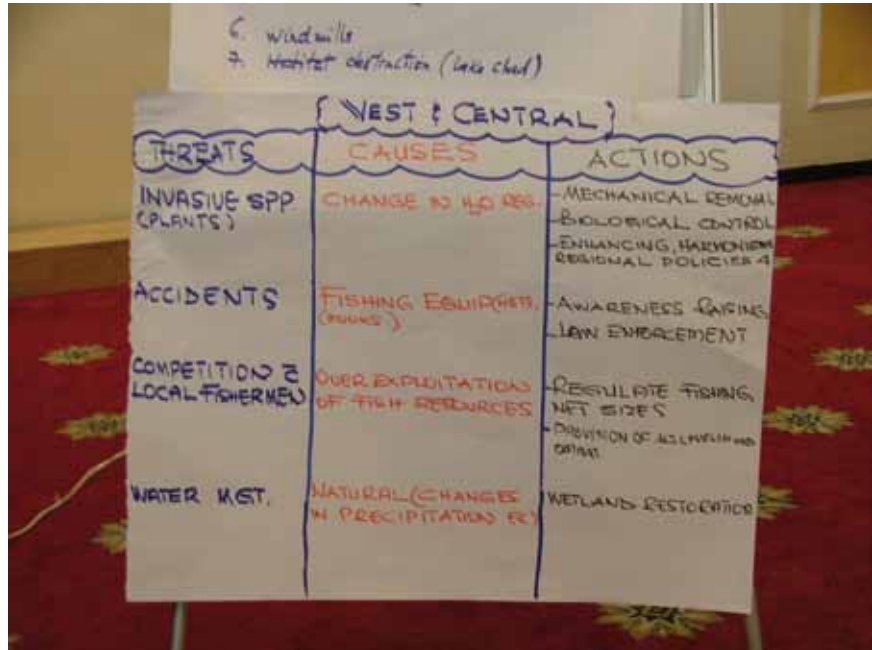 6. windmills
7. Habitat destruction (Lake Chad)
{ WEST & CENTRAL }
THREATS CAUSES ACTIONS
INVASIVE SPP
(PLANTS)
CHANGE IN H2O REG.
- MECHANICAL REMOVAL
- BIOLOGICAL CONTROL
- ENHANCING, 
REGIONAL POLICIES
ACCIDENTS
FISHING
(HOOKS)
- AWARENESS RAISING
- LAW ENFORCEMENT
COMPETITION
LOCAL FISHERMEN
OVER EXPLOITATION
OF FISH RESOURCES
- REGULATE FISHING,
NET SIZES
- PROVISION OF
WATER MGT.
NATURAL (CHANGES
IN PRECIPITATION
WETLAND RESTORATION